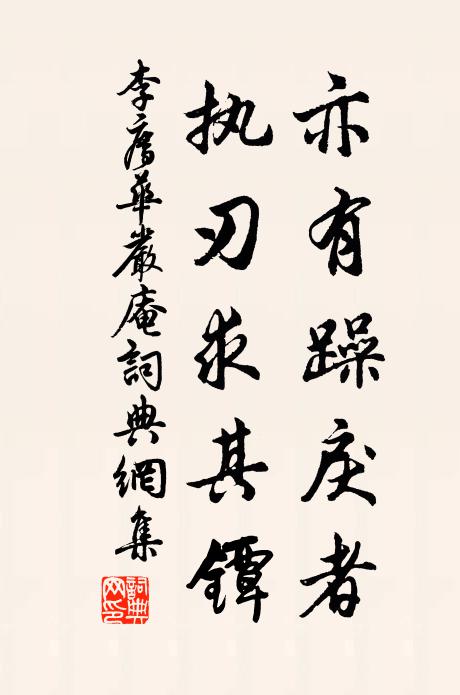 亦有躁戾者
执刃求其鐔
李廌華嚴庵詞典網集
詞典网印